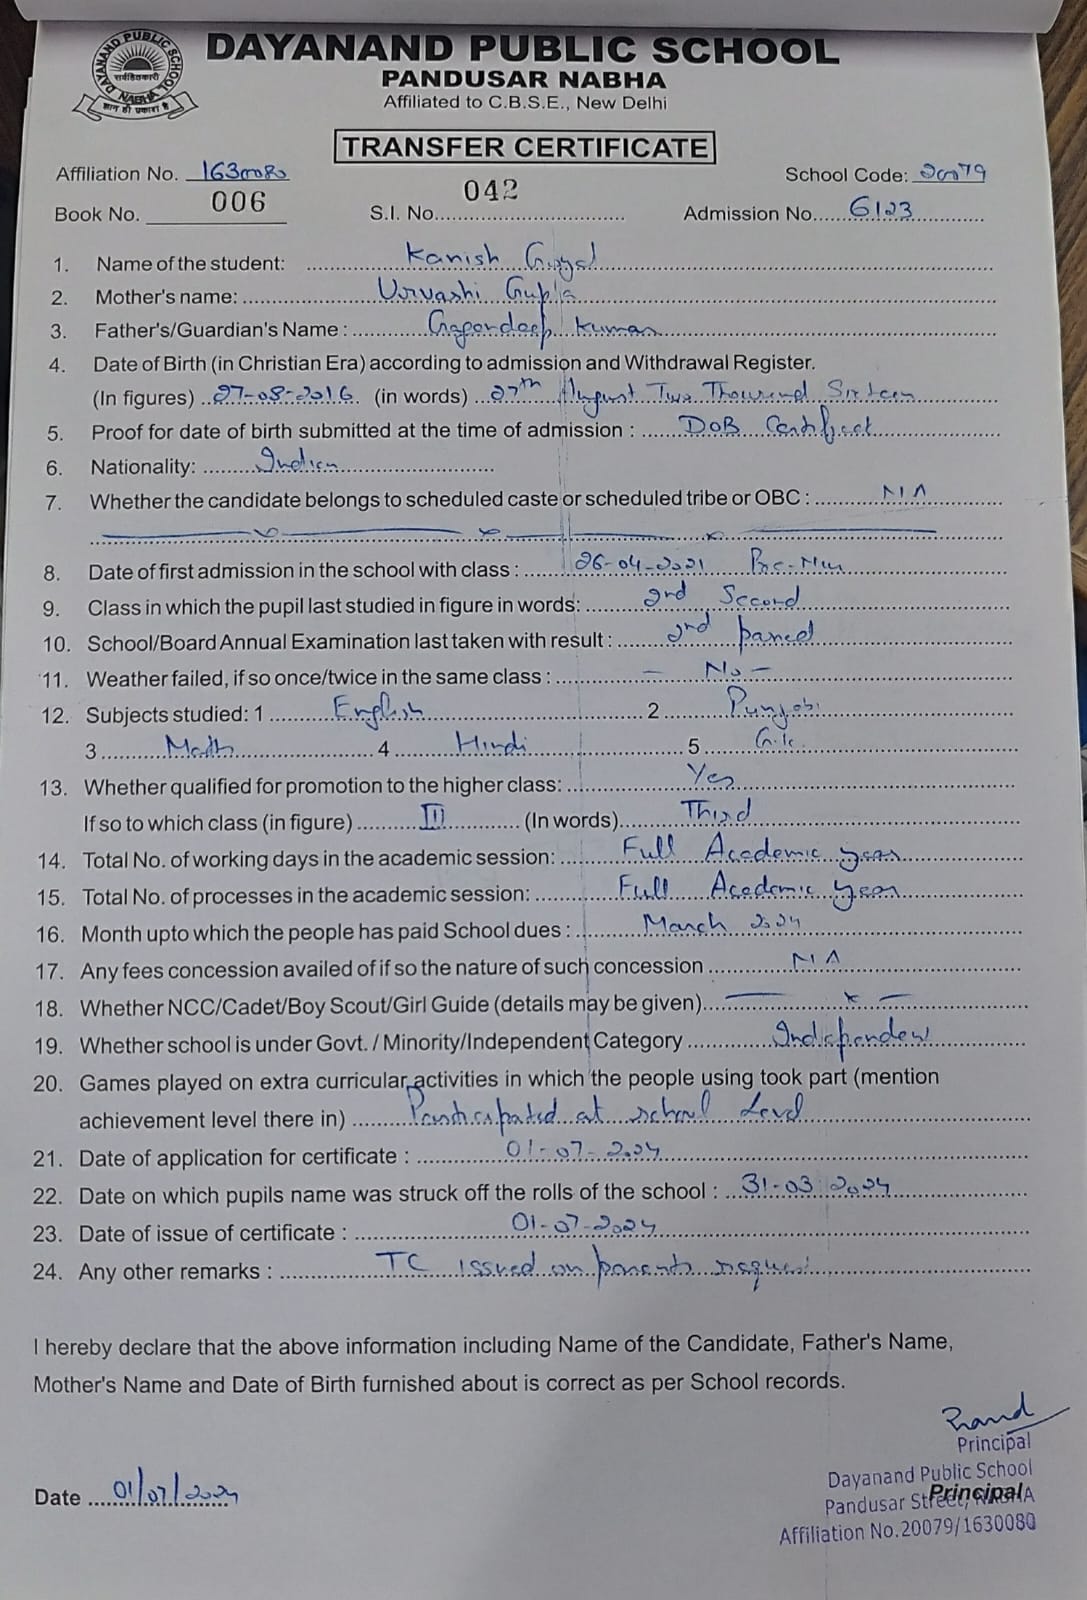 DAYANAND PUBLIC SCHOOL NABHA
सर्वहितकारी
ज्ञान ही प्रकाश है
DAYANAND PUBLIC SCHOOL
PANDUSAR NABHA
Affiliated to C.B.S.E., New Delhi
TRANSFER CERTIFICATE
Affiliation No. 1630080 School Code: 20079
Book No. 006 S.I. No. 042 Admission No. 6123
1. Name of the student: Kanish Goyal
2. Mother's name: Urvashi Gupta
3. Father's/Guardian's Name : Gagandeep Kumar
4. Date of Birth (in Christian Era) according to admission and Withdrawal Register.
(In figures) 27-08-2016 (in words) 27th August Two Thousand Sixteen
5. Proof for date of birth submitted at the time of admission : DOB Certificat
6. Nationality: Indian
7. Whether the candidate belongs to scheduled caste or scheduled tribe or OBC : NA
8. Date of first admission in the school with class : 26-04-2021 Pre-Nur
9. Class in which the pupil last studied in figure in words: 2nd Second
10. School/Board Annual Examination last taken with result : 2nd passed
11. Weather failed, if so once/twice in the same class : - No -
12. Subjects studied: 1 English 2 Punjabi
3 Math 4 Hindi 5 G.K.
13. Whether qualified for promotion to the higher class: Yes
If so to which class (in figure) III (In words) Third
14. Total No. of working days in the academic session: Full Academic year
15. Total No. of processes in the academic session: Full Academic year
16. Month upto which the people has paid School dues : March 2024
17. Any fees concession availed of if so the nature of such concession NA
18. Whether NCC/Cadet/Boy Scout/Girl Guide (details may be given) — x —
19. Whether school is under Govt. / Minority/Independent Category Independent
20. Games played on extra curricular activities in which the people using took part (mention
achievement level there in) Participated at school Level
21. Date of application for certificate : 01-07-2024
22. Date on which pupils name was struck off the rolls of the school : 31-03 2024
23. Date of issue of certificate : 01-07-2024
24. Any other remarks : TC issued on parents request
I hereby declare that the above information including Name of the Candidate, Father's Name,
Mother's Name and Date of Birth furnished about is correct as per School records.
Principal
Dayanand Public School
Date 01/07/2024 Principal
Pandusar Street, NABHA
Affiliation No.20079/1630080